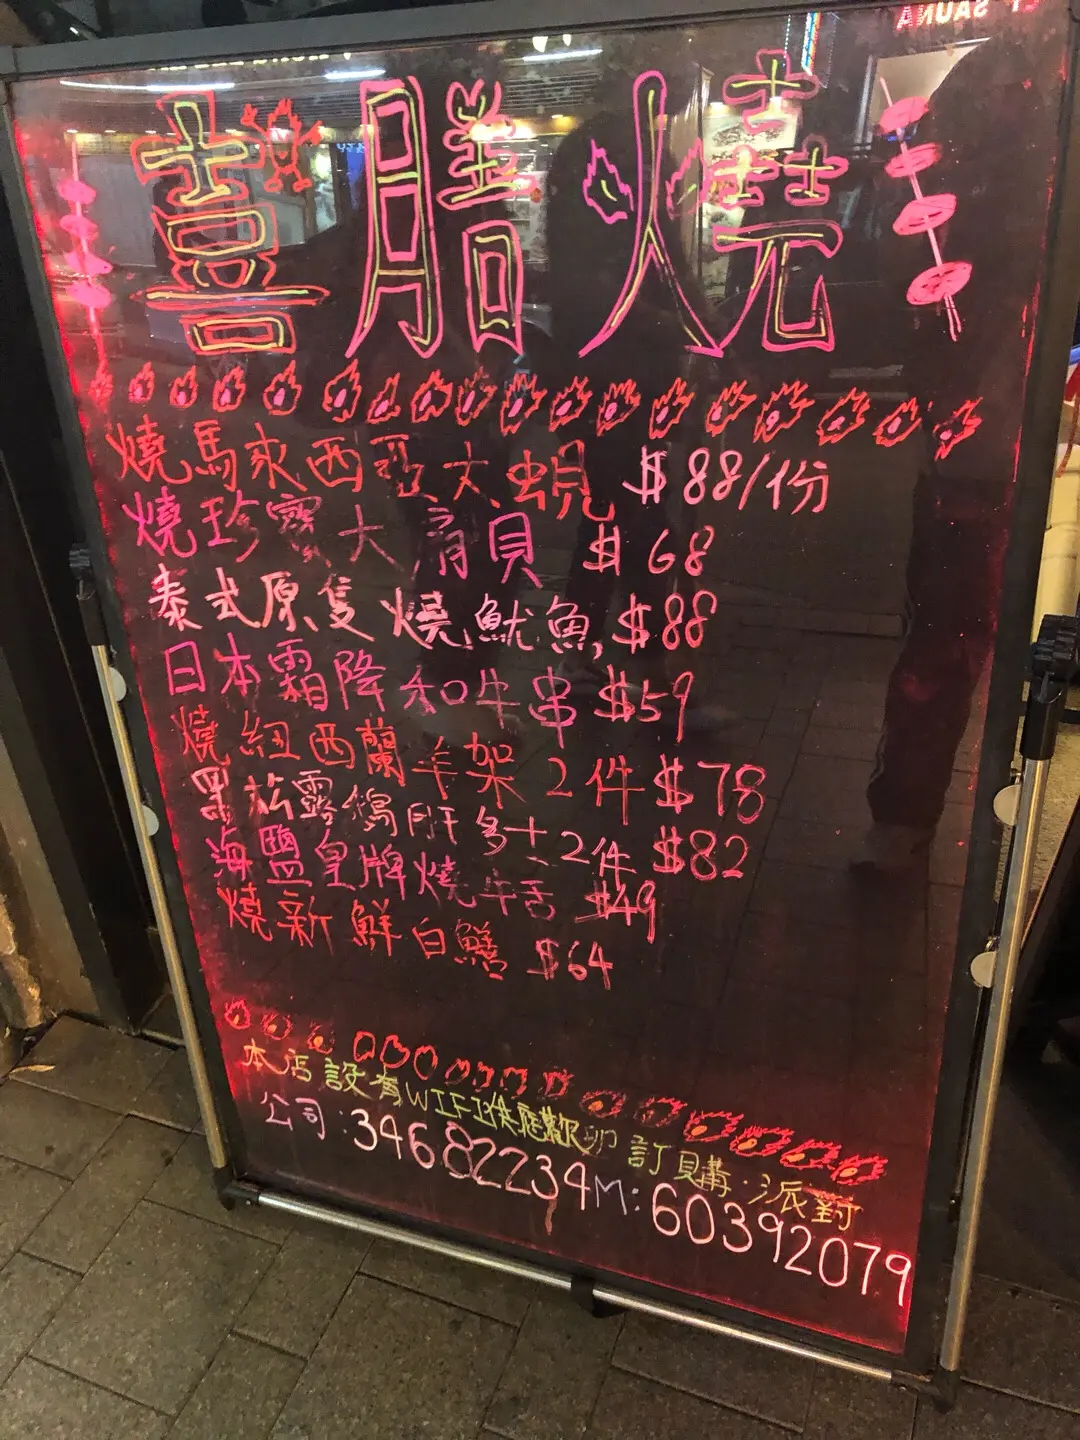 SAUNA
喜腊燒
燒馬來西亞大蜆 $88/份
燒珍寶大肩貝 $68
泰式原隻燒魷魚,$88
日本霜降和牛串 $59
燒紐西蘭羊架 2件 $78
黑松露鵝肝多士2件 $82
海鹽皇牌燒牛舌 $49
燒新鮮白鱔 $64
本店設有WIFI供應歡迎訂購.派對
公司:34682234 M:60392079